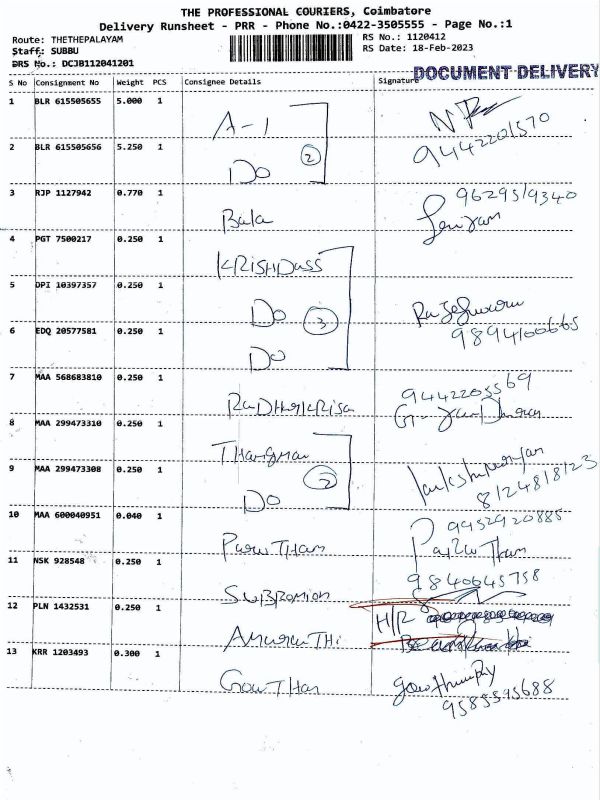 THE PROFESSIONAL COURIERS, Coimbatore
Delivery Runsheet - PRR - Phone No.:0422-3505555 - Page No.:1
Route: THETHEPALAYAM
RS No.: 1120412
Staff: SUBBU
RS Date: 18-Feb-2023
DRS No.: DCJB112041201
DOCUMENT DELIVERY
S No Consignment No Weight PCS Consignee Details Signature
1 BLR 615505655 5.000 1
A-1
9442201570
2 BLR 615505656 5.250 1
Do 2
3 RJP 1127942 0.770 1
9629519340
Bala
4 PGT 7500217 0.250 1
KRISHDASS
5 DPI 10397357 0.250 1
Do 3
6 EDQ 20577581 0.250 1
9894100665
Do
7 MAA 568683810 0.250 1
9442205569
8 MAA 299473310 0.250 1
9 MAA 299473308 0.250 1
2
Do
8124818123
10 MAA 600040951 0.040 1
9952920885
11 NSK 928548 0.250 1
9840645758
12 PLN 1432531 0.250 1
H/R
13 KRR 1203493 0.300 1
GowTham
9585595688